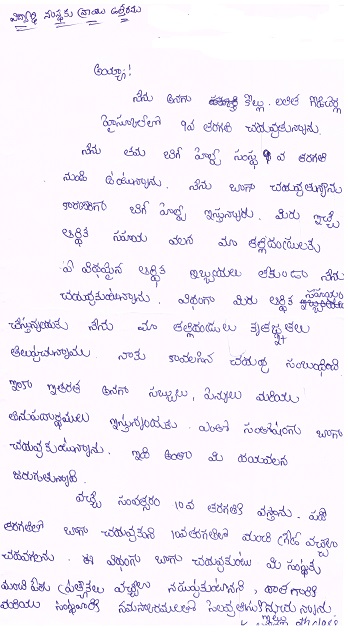 విద్యార్థి సంస్థకు వ్రాయు ఉత్తరము
అయ్యా!
నేను అనగా కొల్లు. లలిత
హైస్కూలులో 9వ తరగతి చదువుతున్నాను.
నేను తమ బిగ్ హెల్ప్ సంస్థ 9 వ తరగతి
నుండి నేను బాగా చదువుతున్నాను
కారణంగా బిగ్ హెల్ప్ ఇస్తున్నారు. మీరు ఇచ్చే
ఆర్థిక సహాయ వలన మా తల్లిదండ్రులకు
ఏ విధమైన ఆర్థిక ఇబ్బందులు లేకుండా నేను
చదువుకుంటున్నాను. విధంగా మీరు ఆర్థిక సహాయం
చేస్తున్నందుకు నేను మా తల్లిదండ్రులు కృతజ్ఞతలు
తెలుపుచున్నాము. నాకు కావలసిన చదువు సంబంధించి
ఇంకా ఇతరత్ర అనగా సబ్బులు, పెన్నులు మరియు
తినుపదార్థములు ఇస్తున్నందుకు. ఎంతో సంతోషంగా బాగా
చదువుకుంటున్నాను. ఇది అంతా మీ దయవలన
జరుగుతున్నాది.
వచ్చే సంవత్సరం 10వ తరగతికి వస్తాను. పదో
తరగతిలో బాగా చదువుకుని 10వతరగతిలో మంచి గ్రేడ్ వచ్చేలా
చదవగలను. ఈ విధంగా బాగా చదువుకుంటు మీ సంస్థకు
మంచి పేరు వచ్చేలా నడుచుకుంటానని,
మరియు సంస్థవారికి నమస్కారములతో సెలవు తీసుకొనుచున్నాను.